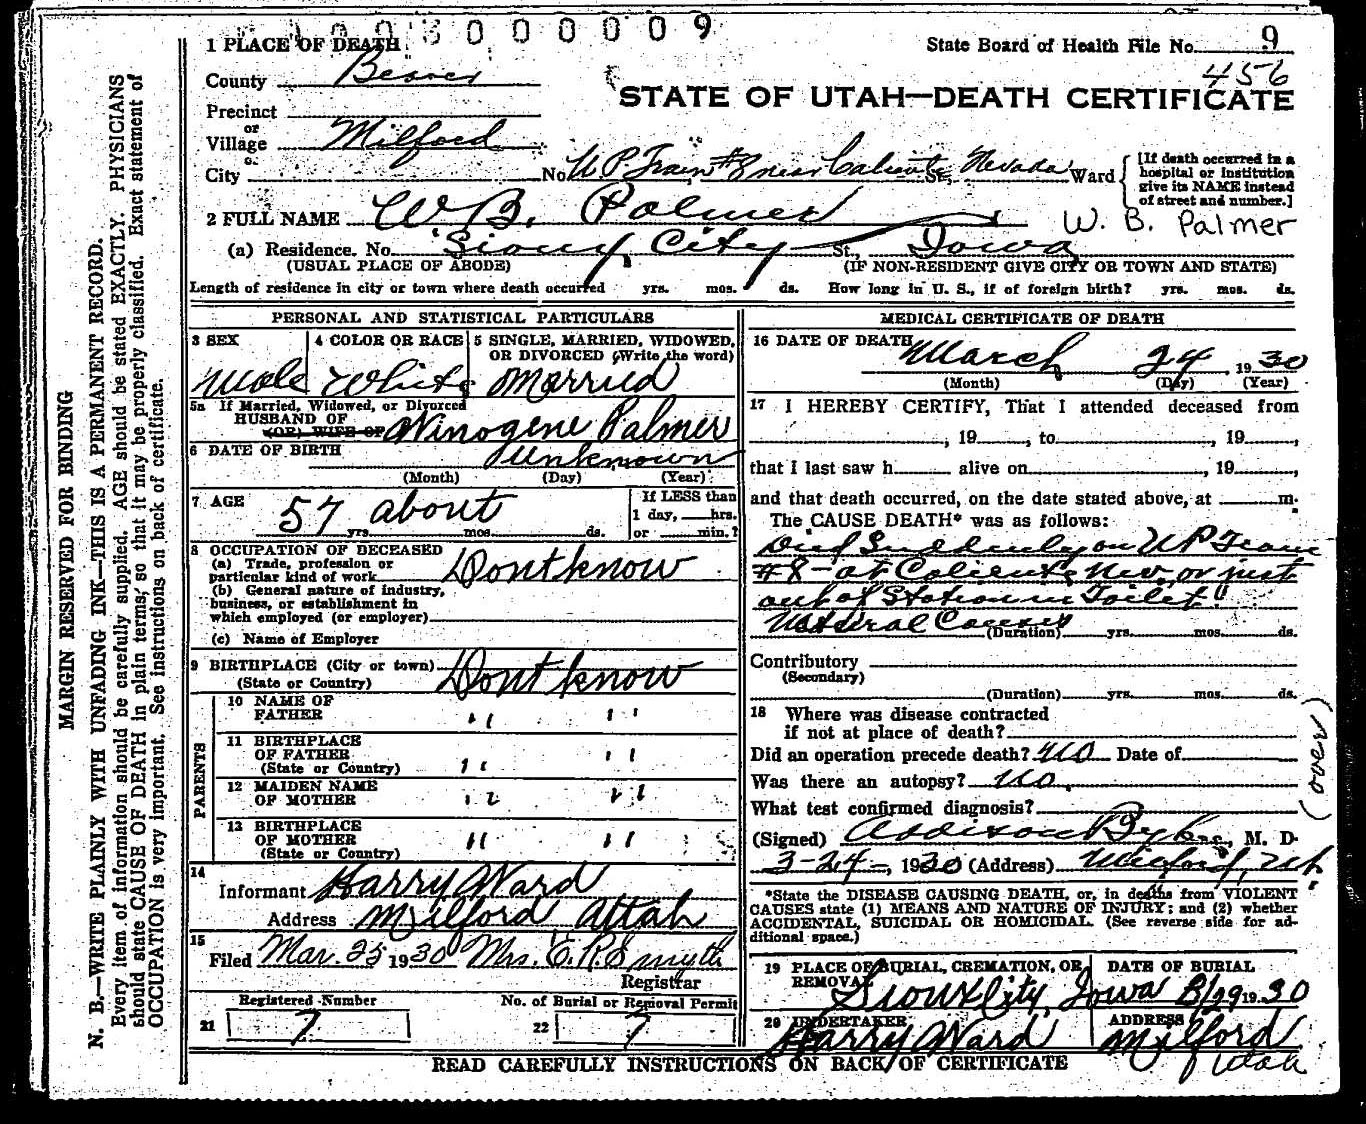 0 0 0 0 0 9
1 PLACE OF DEATH
State Board of Health File No. 9
County Beaver
456
STATE OF UTAH—DEATH CERTIFICATE
Precinct
or
Village Milford
or
City No. U P Train #8 near Caliente St., Nevada Ward
[If death occurred in a
hospital or institution
give its NAME instead
of street and number.]
2 FULL NAME W. B. Palmer
W. B. Palmer
(a) Residence. No. Sioux City St., Iowa
(USUAL PLACE OF ABODE) (IF NON-RESIDENT GIVE CITY OR TOWN AND STATE)
Length of residence in city or town where death occurred yrs. mos. ds. How long in U. S., if of foreign birth? yrs. mos. ds.
PERSONAL AND STATISTICAL PARTICULARS
3 SEX 4 COLOR OR RACE 5 SINGLE, MARRIED, WIDOWED,
OR DIVORCED (Write the word)
Male White Married
5a If Married, Widowed, or Divorced
HUSBAND OF
(OR) WIFE OF Winogene Palmer
6 DATE OF BIRTH unknown
(Month) (Day) (Year)
7 AGE 57 about
yrs. mos. ds.
If LESS than
1 day, hrs.
or min.?
8 OCCUPATION OF DECEASED
(a) Trade, profession or
particular kind of work Dont know
(b) General nature of industry,
business, or establishment in
which employed (or employer)
(c) Name of Employer
9 BIRTHPLACE (City or town)
(State or Country) Dont know
PARENTS
10 NAME OF
FATHER " "
11 BIRTHPLACE
OF FATHER
(State or Country) " "
12 MAIDEN NAME
OF MOTHER " "
13 BIRTHPLACE
OF MOTHER
(State or Country) " "
14
Informant Harry Ward
Address Milford Uttah
15
Filed Mar. 25 1930 Mrs. E. R. Smyth
Registrar
Registered Number No. of Burial or Removal Permit
21 7 22 7
MEDICAL CERTIFICATE OF DEATH
16 DATE OF DEATH March 24 1930
(Month) (Day) (Year)
17 I HEREBY CERTIFY, That I attended deceased from
, 19 , to , 19 ,
that I last saw h alive on , 19 ,
and that death occurred, on the date stated above, at m.
The CAUSE DEATH* was as follows:
Died Suddenly on U P Train
#8 - at Caliente Nev. or just
out of Station in Toilet.
Natural Causes
(Duration) yrs. mos. ds.
Contributory
(Secondary)
(Duration) yrs. mos. ds.
18 Where was disease contracted
if not at place of death?
Did an operation precede death? no Date of
Was there an autopsy? no.
What test confirmed diagnosis?
(Signed) Addison , M. D.
3-24-, 1930 (Address) Milford, Ut.
(over)
*State the DISEASE CAUSING DEATH, or, in deaths from VIOLENT
CAUSES state (1) MEANS AND NATURE OF INJURY; and (2) whether
ACCIDENTAL, SUICIDAL OR HOMICIDAL. (See reverse side for ad-
ditional space.)
19 PLACE OF BURIAL, CREMATION, OR
REMOVAL
DATE OF BURIAL
Sioux City, Iowa 3/29 1930
20 UNDERTAKER ADDRESS
Harry Ward Milford
Utah
READ CAREFULLY INSTRUCTIONS ON BACK OF CERTIFICATE
MARGIN RESERVED FOR BINDING
N. B.—WRITE PLAINLY WITH UNFADING INK—THIS IS A PERMANENT RECORD.
Every item of information should be carefully supplied. AGE should be stated EXACTLY. PHYSICIANS
should state CAUSE OF DEATH in plain terms, so that it may be properly classified. Exact statement of
OCCUPATION is very important. See instructions on back of certificate.